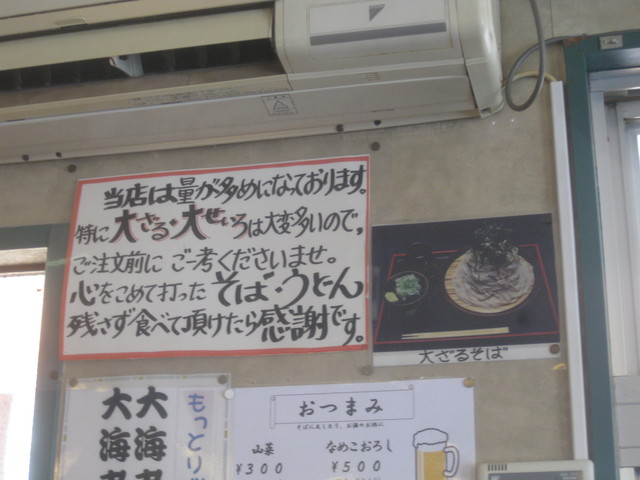 当店は量が多めになっております。
特に大ざる・大せいろは大変多いので、
ご注文前にご一考くださいませ。
心をこめて打ったそば・うどん
残さず食べて頂けたら感謝です。
大ざるそば
もっとり
大海老
大海老
おつまみ
山菜
¥300
なめこおろし
¥500